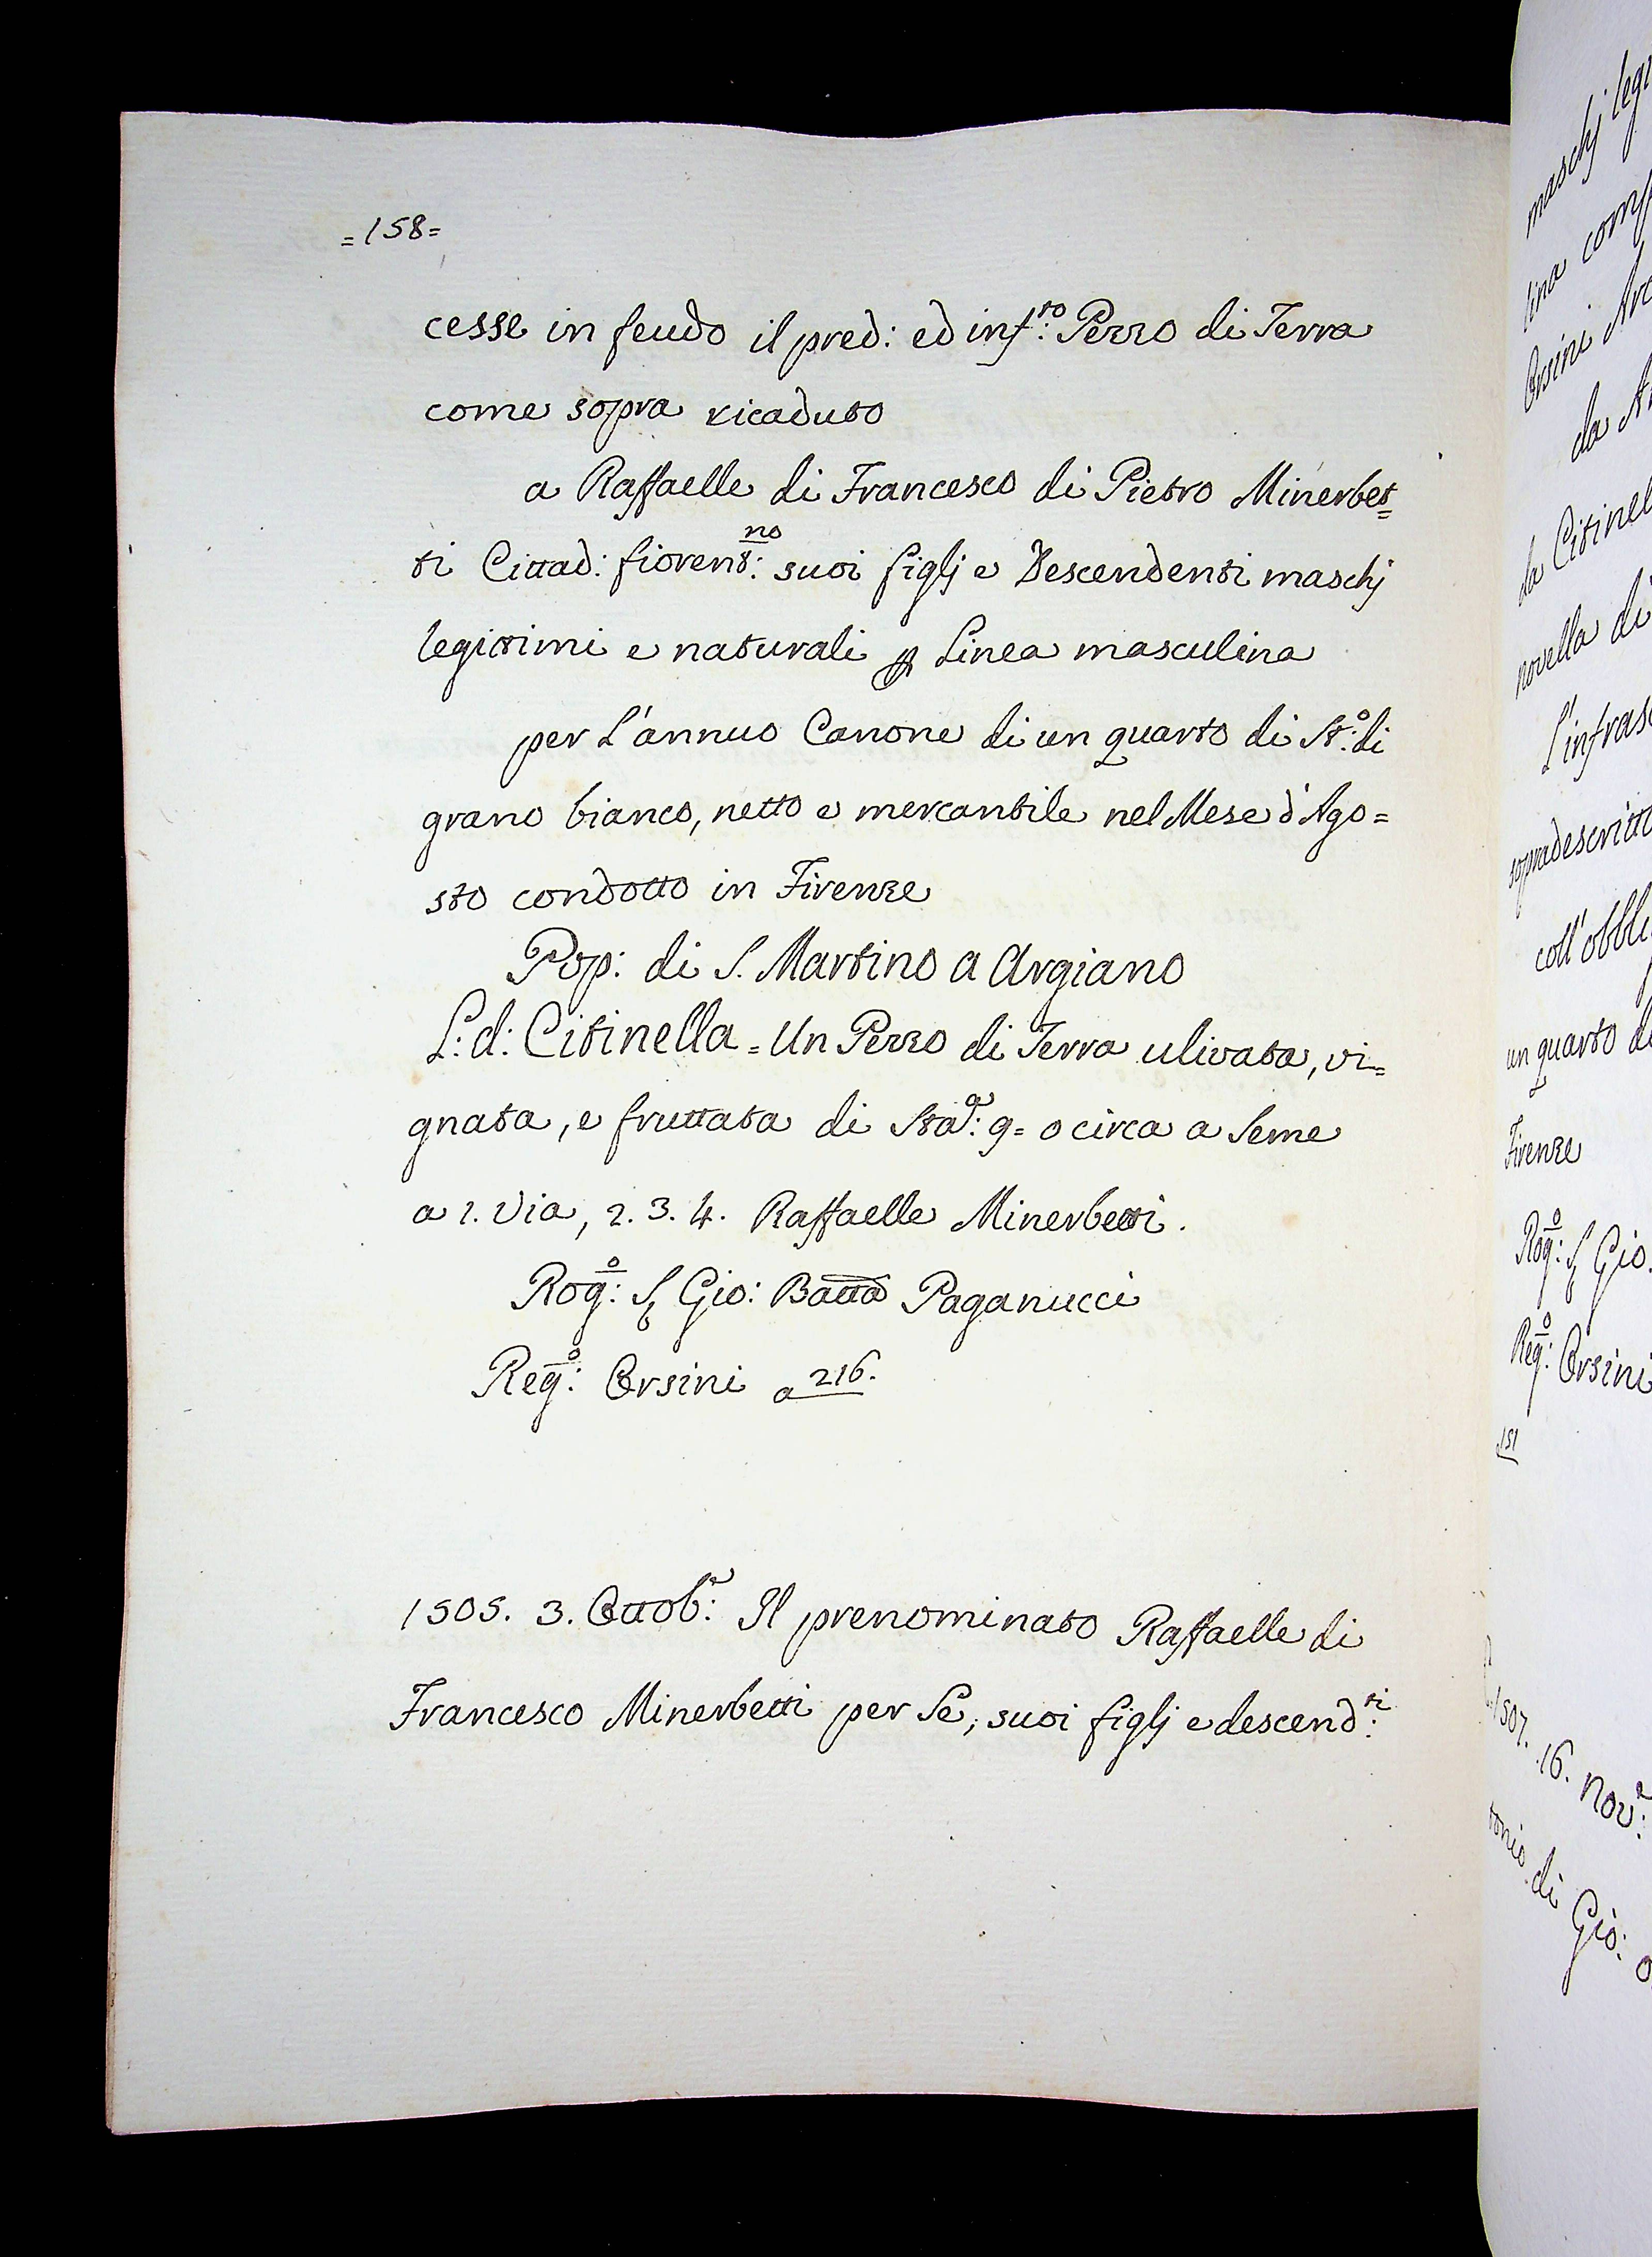 =158=
cesse in feudo il pred: ed inf:to Pezzo di Terra
come sopra ricaduto
a Raffaelle di Francesco di Pietro Minerbet=
ti Cittad: fiorent:no suoi figlj e Descendenti maschj
legittimi e naturali p Linea masculina
per L'annuo Canone di un quarto di St:o di
grano bianco, netto e mercantile nel Mese d'Ago=
sto condotto in Firenze
Pop: di S. Martino a Argiano
L: d: Citinella = Un Pezzo di Terra ulivata, vi=
gnata, e fruttata di Stad:a 9= o circa a Seme
a 1. Via, 2. 3. 4. Raffaelle Minerbetti.
Rog:o S Gio: Batta Paganucci
Reg:o Orsini a 216.
1505. 3. Ottob:e Il prenominato Raffaelle di
Francesco Minerbetti per Se, suoi figlj e descend:ti
maschj legi
lina comp
Orsini Arc
da A
da Citinel
novella di
L'infras
sopradescritto
coll'obbli
un quarto d
Firenze
Rog:o S Gio.
Reg:o Orsini
151
1507. 16. Nov:e
tonio di Gio: